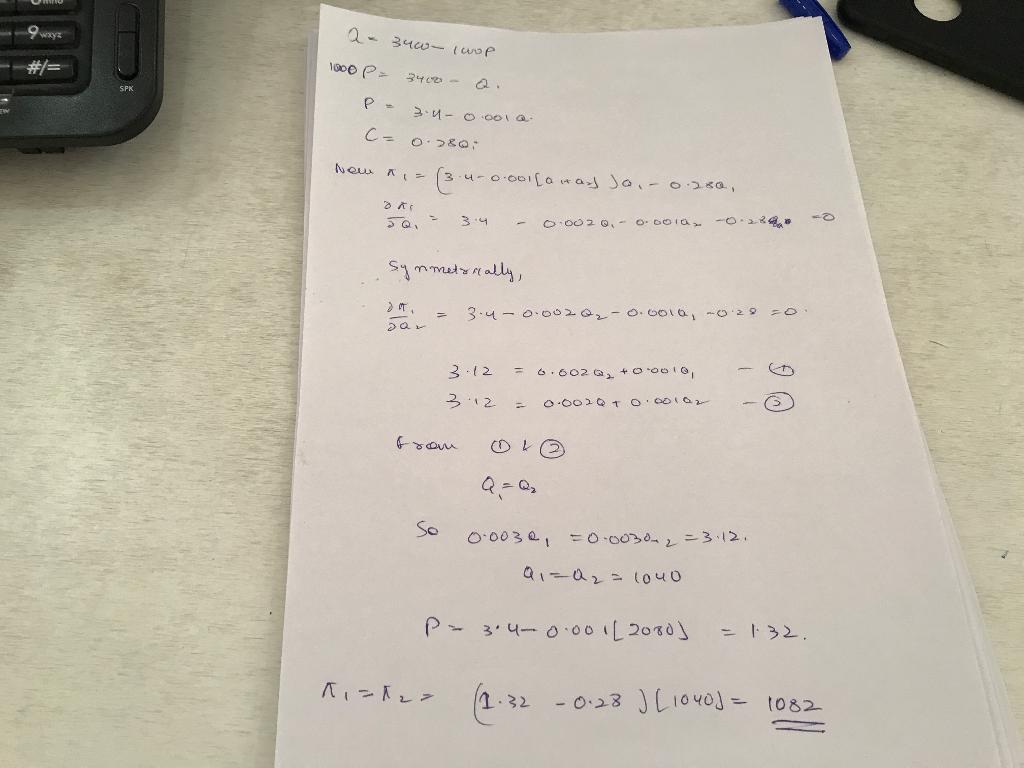 9 wxyz
#/=
SPK
Q = 3400 - 1000P
1000P = 3400 - Q.
P = 3.4 - 0.001Q.
C = 0.28Qi
New π1 = (3.4 - 0.001[Q1+Q2])Q1 - 0.28Q1
∂π1/∂Q1 = 3.4 - 0.002Q1 - 0.001Q2 - 0.28 = 0
Symmetrically,
∂π1/∂Q2 = 3.4 - 0.002Q2 - 0.001Q1 - 0.28 = 0.
3.12 = 0.002Q2 + 0.001Q1 - ①
3.12 = 0.002Q + 0.001Q2 - ②
from ① & ②
Q1 = Q2
So 0.003Q1 = 0.003Q2 = 3.12.
Q1 = Q2 = 1040
P = 3.4 - 0.001[2080] = 1.32.
π1 = π2 = (1.32 - 0.28)[1040] = 1082